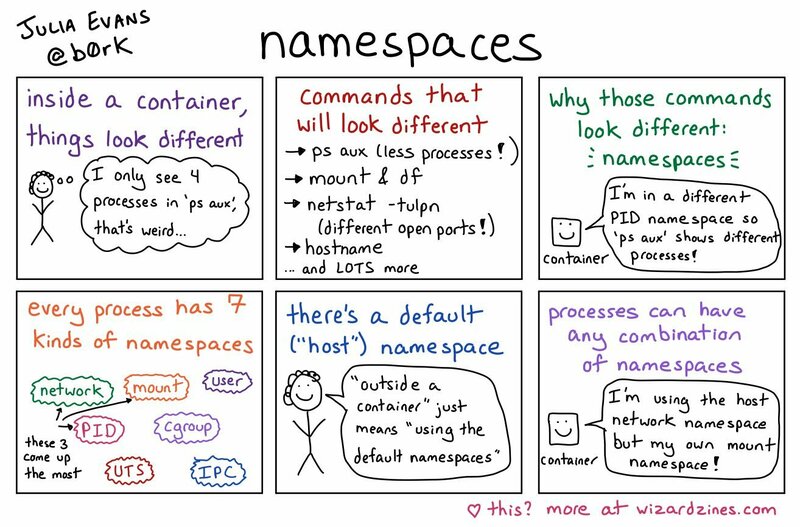 JULIA EVANS
@b0rk
namespaces
inside a container,
things look different
I only see 4
processes in 'ps aux',
that's weird...
commands that
will look different
→ ps aux (less processes!)
→ mount & df
→ netstat -tulpn
(different open ports!)
→ hostname
... and LOTS more
why those commands
look different:
namespaces
I'm in a different
PID namespace so
'ps aux' shows different
processes!
container
every process has 7
kinds of namespaces
network
mount
user
PID
cgroup
these 3
come up
the most
UTS
IPC
there's a default
("host") namespace
"outside a
container" just
means "using the
default namespaces"
processes can have
any combination
of namespaces
I'm using the host
network namespace
but my own mount
namespace!
container
♡ this? more at wizardzines.com